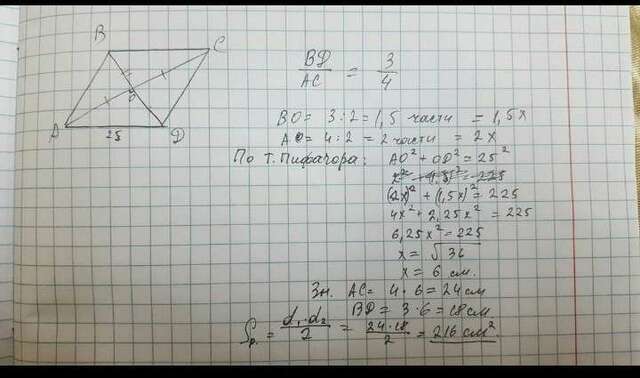 B C
BD/AC = 3/4
O
A 25 D
BO = 3:2 = 1,5 части = 1,5x
AO = 4:2 = 2 части = 2x
По т. Пифагора: AO² + OD² = 25²
(2x)² + (1,5x)² = 225
4x² + 2,25x² = 225
6,25x² = 225
x = √36
x = 6 см.
Зн. AC = 4·6 = 24 см
BD = 3·6 = 18 см
Sр. = d₁·d₂/2 = 24·18/2 = 216 см²